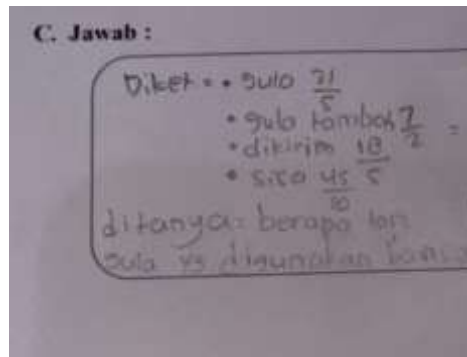 C. Jawab :
Diket = • gula 21/5
• gula tambah 7/2 =
• dikirim 18/5
• sisa 45/10
ditanya = berapa ton
gula yg digunakan